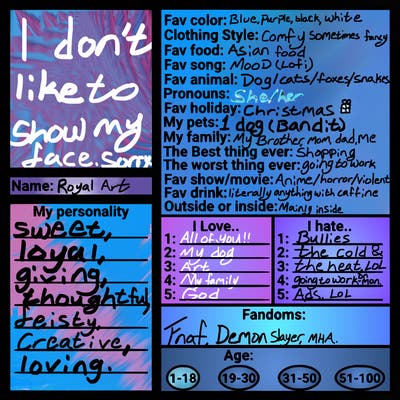 I don't
like to
show my
face. Sorry
Name: Royal Art
My personality
sweet,
loyal,
giving,
thoughtful,
feisty,
Creative,
loving.
Fav color: Blue, Purple, black, white
Clothing Style: Comfy sometimes fancy
Fav food: Asian food
Fav song: MooD (Lofi)
Fav animal: Dog/cats/foxes/snakes
Pronouns: She/her
Fav holiday: Christmas
My pets: 1 dog (Bandit)
My family: My Brother, mom, dad, me
The Best thing ever: Shopping
The worst thing ever: going to work
Fav show/movie: Anime/horror/violent
Fav drink: literally anything with caffine
Outside or inside: Mainly inside
I Love..
1: All of you!!
2: My dog
3: Art
4: My family
5: God
I hate..
1: Bullies
2: the cold &
3: the heat, LoL
4: going to work on mon.
5: Ads, LoL
Fandoms:
Fnaf. Demon Slayer, MHA.
Age:
1-18 19-30 31-50 51-100